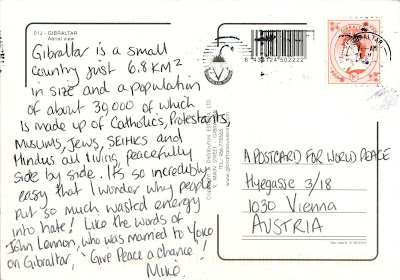 01J - GIBRALTAR
Aerial view
Gibraltar is a small
country just 6.8km2
in size and a population
of about 30,000 of which
is made up of Catholics, Protestants,
Muslums, Jews, SEIHICS and
Hindus all living peacefully
side by side. It's so incredibly
easy that I wonder why people
put so much wasted energy
into hate! Like the words of
John Lennon, who was married to Yoko
on Gibraltar, 'Give Peace a chance'!
MIKE.
GIBRALTAR
A POSTCARD FOR WORLD PEACE
Hyegasse 3/18
1030 Vienna
AUSTRIA